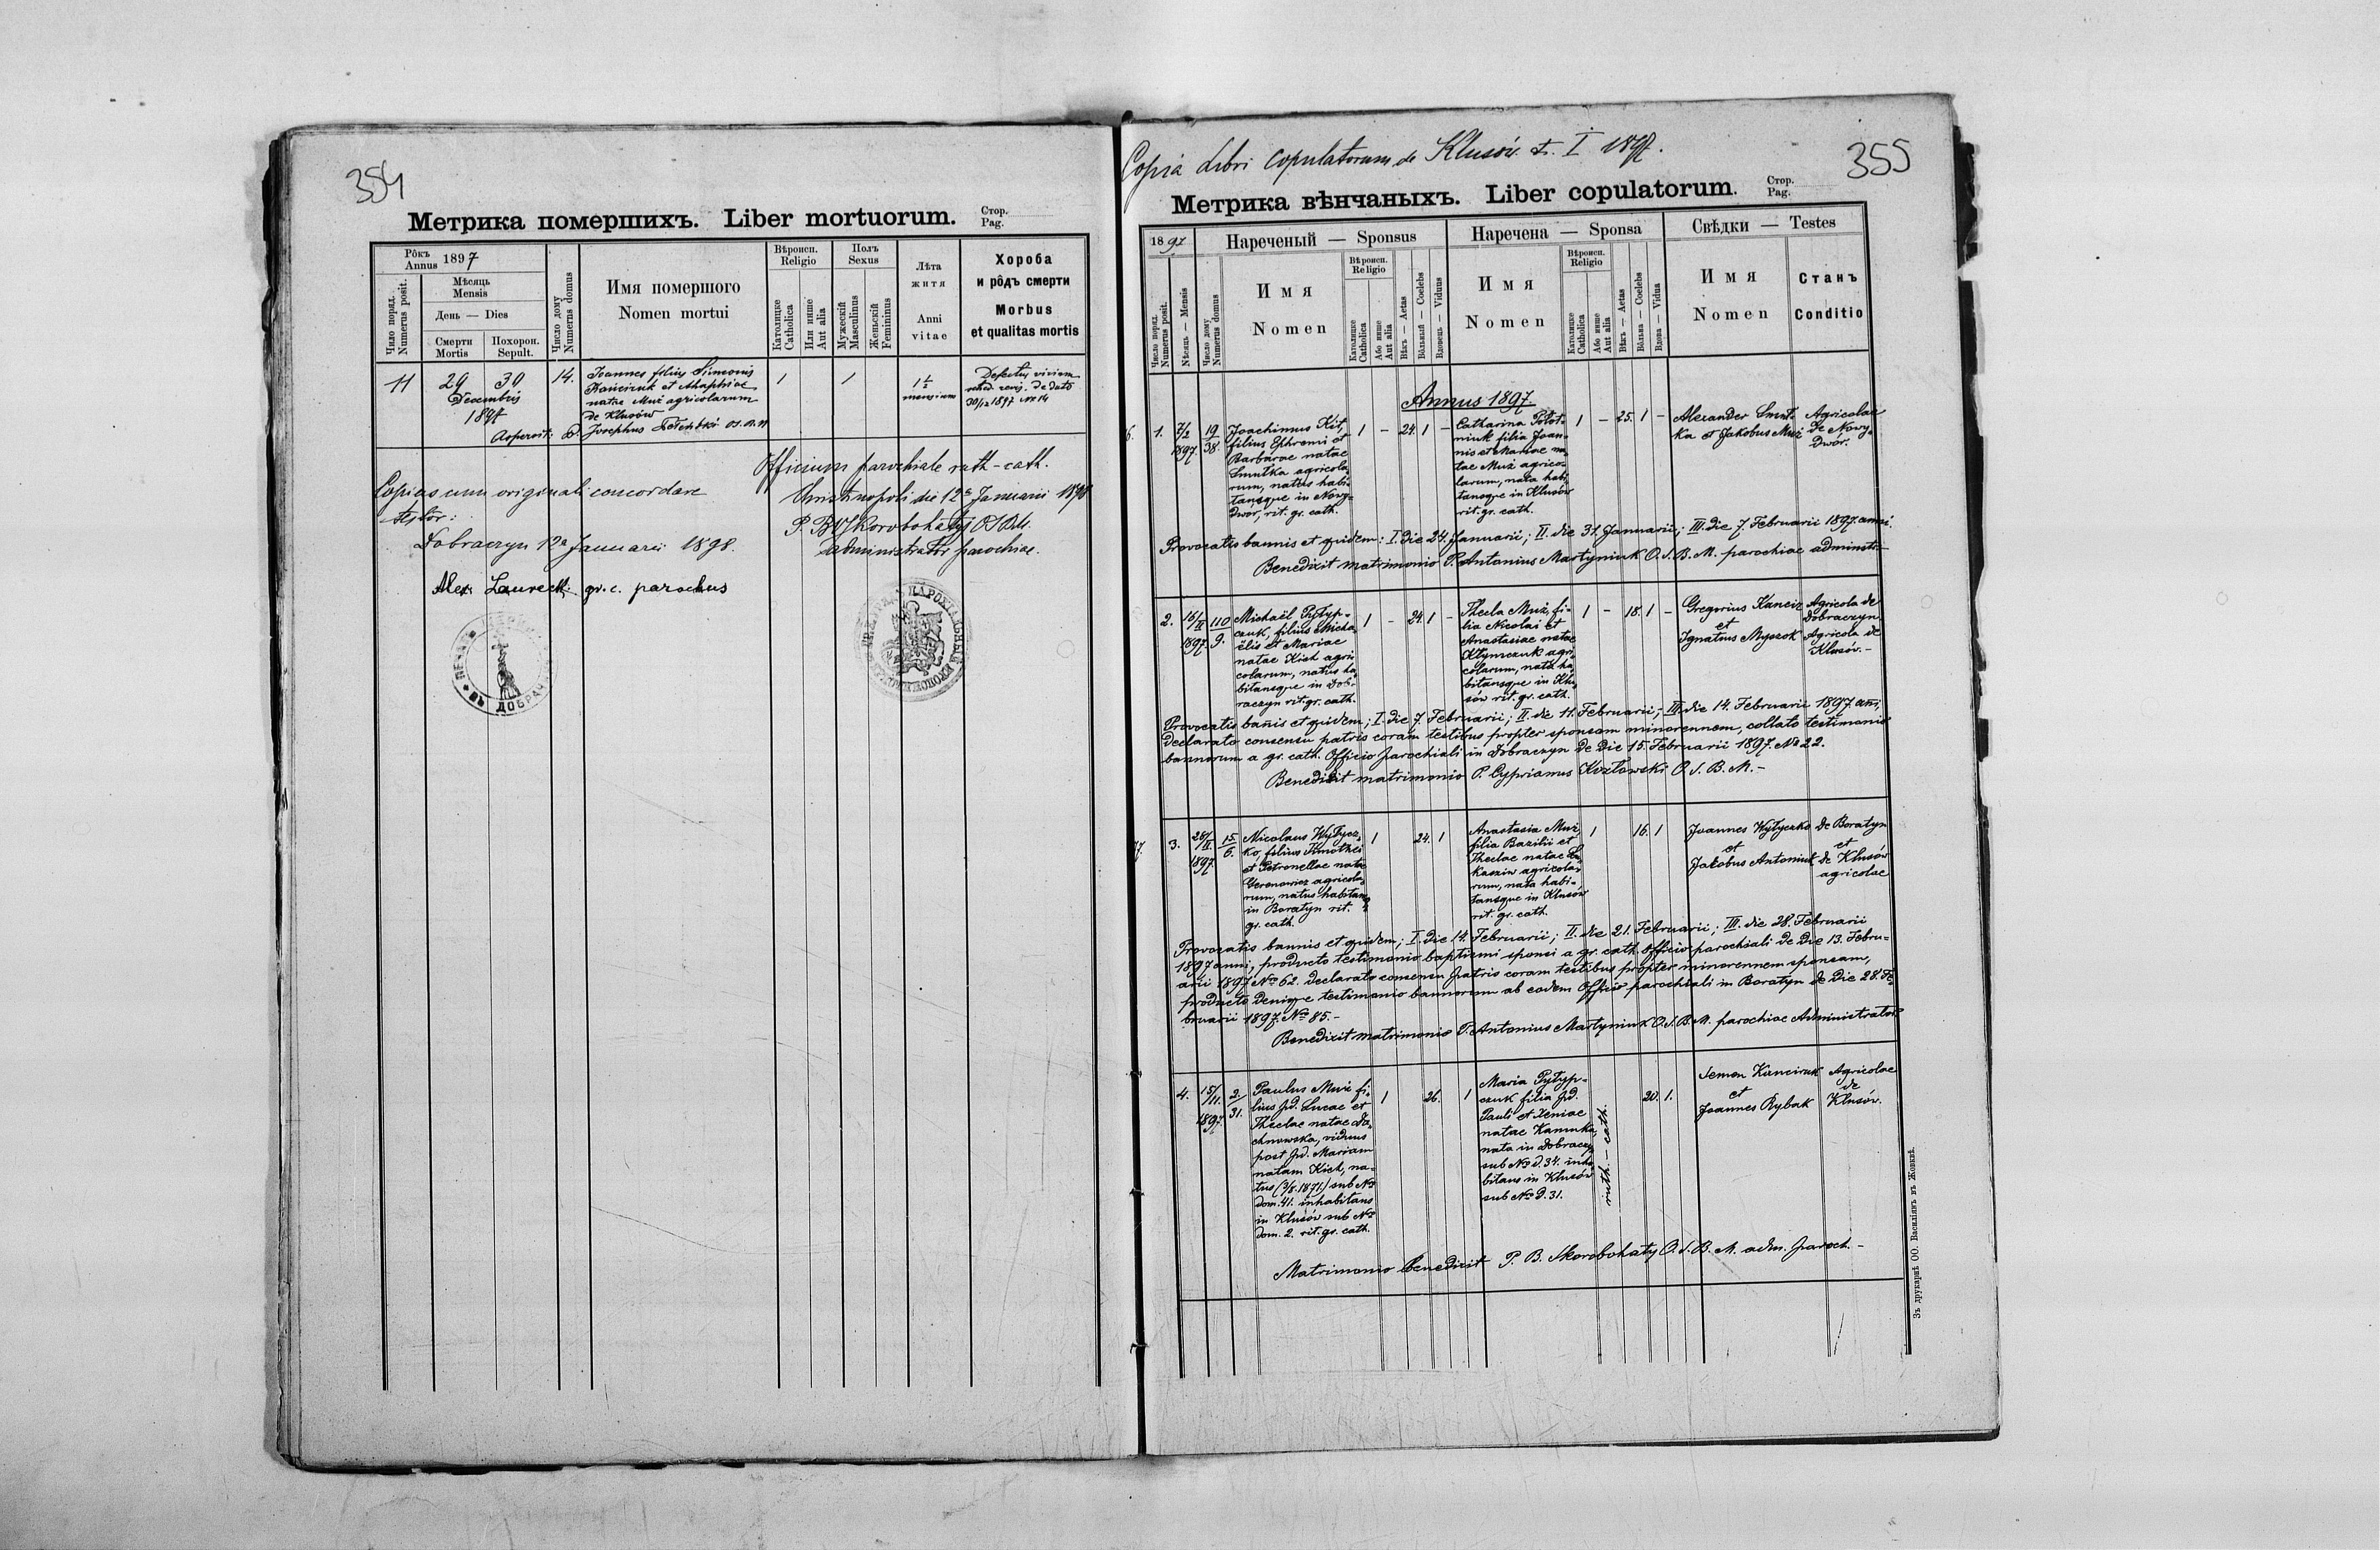 354
Метрика померших. Liber mortuorum.
Стор.
Pag.
Рôкъ
Annus 1897
Чило поряд.
Numerus posit.
Мѣсяць
Mensis
День — Dies
Смерти
Mortis
Похорон.
Sepult.
Число дому
Numerus domus
Имя помершого
Nomen mortui
Вѣроисп.
Religio
Католицке
Catholica
Или иише
Aut alia
Полъ
Sexus
Мужескій
Masculinus
Женьскій
Femininus
Лѣта
житя
Anni
vitae
Хороба
и рôдъ смерти
Morbus
et qualitas mortis
11 29 30
Decembris
1897
14.
Joannes filius Simeonis
Kanciruk et Ahaphiae
natae Muż agricolarum
de Klusów
1 1
1½
mensium
Defectus virium
30/12 1897 № 14
Officium parochiale ruth-cath.
Christinopoli die 12a Januarii 1898
P. B. Skorobohatyj OSBM.
administrator parochiae.
Copias cum originali concordare
testor:
Dobraczyn 12a Januarii 1898.
Alex. Laurecki gr. c. parochus
355
Copia Libri copulatorum de Klusów t. I 1897.
Метрика вѣнчаныхъ. Liber copulatorum.
Стор.
Pag.
1897
Нареченый — Sponsus
Наречена — Sponsa
Свѣдки — Testes
Число поряд.
Numerus posit.
Мѣсяць — Mensis
Число дому
Numerus domus
Имя
Nomen
Вѣроисп.
Religio
Католицке
Catholica
Або иише
Aut alia
Вѣкъ — Aetas
Вôльный — Coelebs
Вдовець — Viduus
Имя
Nomen
Вѣроисп.
Religio
Католицке
Catholica
Або иише
Aut alia
Вѣкъ — Aetas
Вôльна — Coelebs
Вдова — Vidua
Имя
Nomen
Станъ
Conditio
Annus 1897
1. 7/2 1897. 19/38.
Joachimus Kit,
filius Ephremi et
Barbarae natae
Smutka agricola-
rum, natus habi-
tansque in Nowy-
Dwór, rit. gr. cath.
1 - 24. 1 -
Catharina Połot-
niuk filia Joan-
nis et Mariae na-
tae Muż agrico-
larum, nata habi-
tansque in Klusów
rit. gr. cath.
1 - 25. 1 -
Alexander Smut-
ka et Jakobus Muż
Agricolae
de Nowy-
Dwór.
Provocatis bannis et quidem: I. die 24. Januarii; II. die 31. Januarii; III. die 7. Februarii 1897. anni.
Benedixit matrimonio P. Antonius Martyniuk O. S. B. M. parochiae administr-
2. 16/II 1897. 110 9.
Michaël Pyłyp-
czuk, filius Micha-
ëlis et Mariae
natae Kich agri-
colarum, natus ha-
bitansque in Dob-
raczyn rit. gr. cath.
1 - 24. 1 -
Thecla Muż, fi-
lia Nicolai et
Anastasiae natae
Kłymczuk agri-
colarum, nata ha-
bitansque in Klu-
sów rit. gr. cath.
1 - 18. 1 -
Gregorius Kancir
et
Ignatius Myszok
Agricola de
Dobraczyn
Agricola de
Klusów. -
Provocatis bañis et quidem; I. die 7. Februarii; II. die 11. Februarii; III. die 14. Februarii 1897. añi,
declarato consensu patris coram testibus propter sponsam minorennem, collato testimonio
bannorum a gr. cath. Officio parochiali in Dobraczyn de die 15. Februarii 1897. № 22.
Benedixit matrimonio P. Cyprianus Kozłowski O. S. B. M. -
3. 28/II. 1897 15/6.
Nicolaus Wytycz-
ko, filius Timothei
et Petronellae natae
Geronowicz agricola-
rum, natus habitansq
in Boratyn rit.
gr. cath.
1 24. 1
Anastasia Muż
filia Bazilii et
Theclae natae Łu-
kasziw agricola-
rum, nata habi-
tansque in Klusów
rit. gr. cath.
1 16. 1
Joannes Wytyczko
et
Jakobus Antoniuk
de Boratyn
et
de Klusów
agricolae
Provocatis bannis et quidem; I. die 14. Februarii; II. die 21. Februarii; III. die 28. Februarii
1897 anni, producto testimonio baptismi sponsi a gr. cath. Officio parochiali de die 13. Febru-
arii 1897 № 62. declarato consensu patris coram testibus propter minorennem sponsam,
producto denique testimonio bannorum ab eodem Officio parochiali in Boratyn de die 28. Fe-
bruarii 1897. № 85. -
Benedixit matrimonio P. Antonius Martyniuk O. S. B. M. parochiae Administrator
4. 15/11. 1897. 2./31.
Paulus Muż fi-
lius pd. Lucae et
Theclae natae Da-
chnowska, viduus
post pd. Mariam
natam Kich, na-
tus (3/8. 1871.) sub №
dom. 41. inhabitans
in Klusów sub №
dom. 2. rit. gr. cath.
1 26. 1
Maria Pyłyp-
czuk filia pd.
Pauli et Xeniae
natae Kamuka,
nata in Dobraczyn
sub № d. 34. inha-
bitans in Klusów
sub № d. 31.
ruth. - cath.
20. 1.
Semen Kanciruk
et
Joannes Rybak
Agricolae
de
Klusów.
Matrimonio benedixit P. B. Skorobohaty O. S. B. M. adm. paroch. -
Зъ друкарнѣ ОО. Василіянъ въ Жовквѣ.